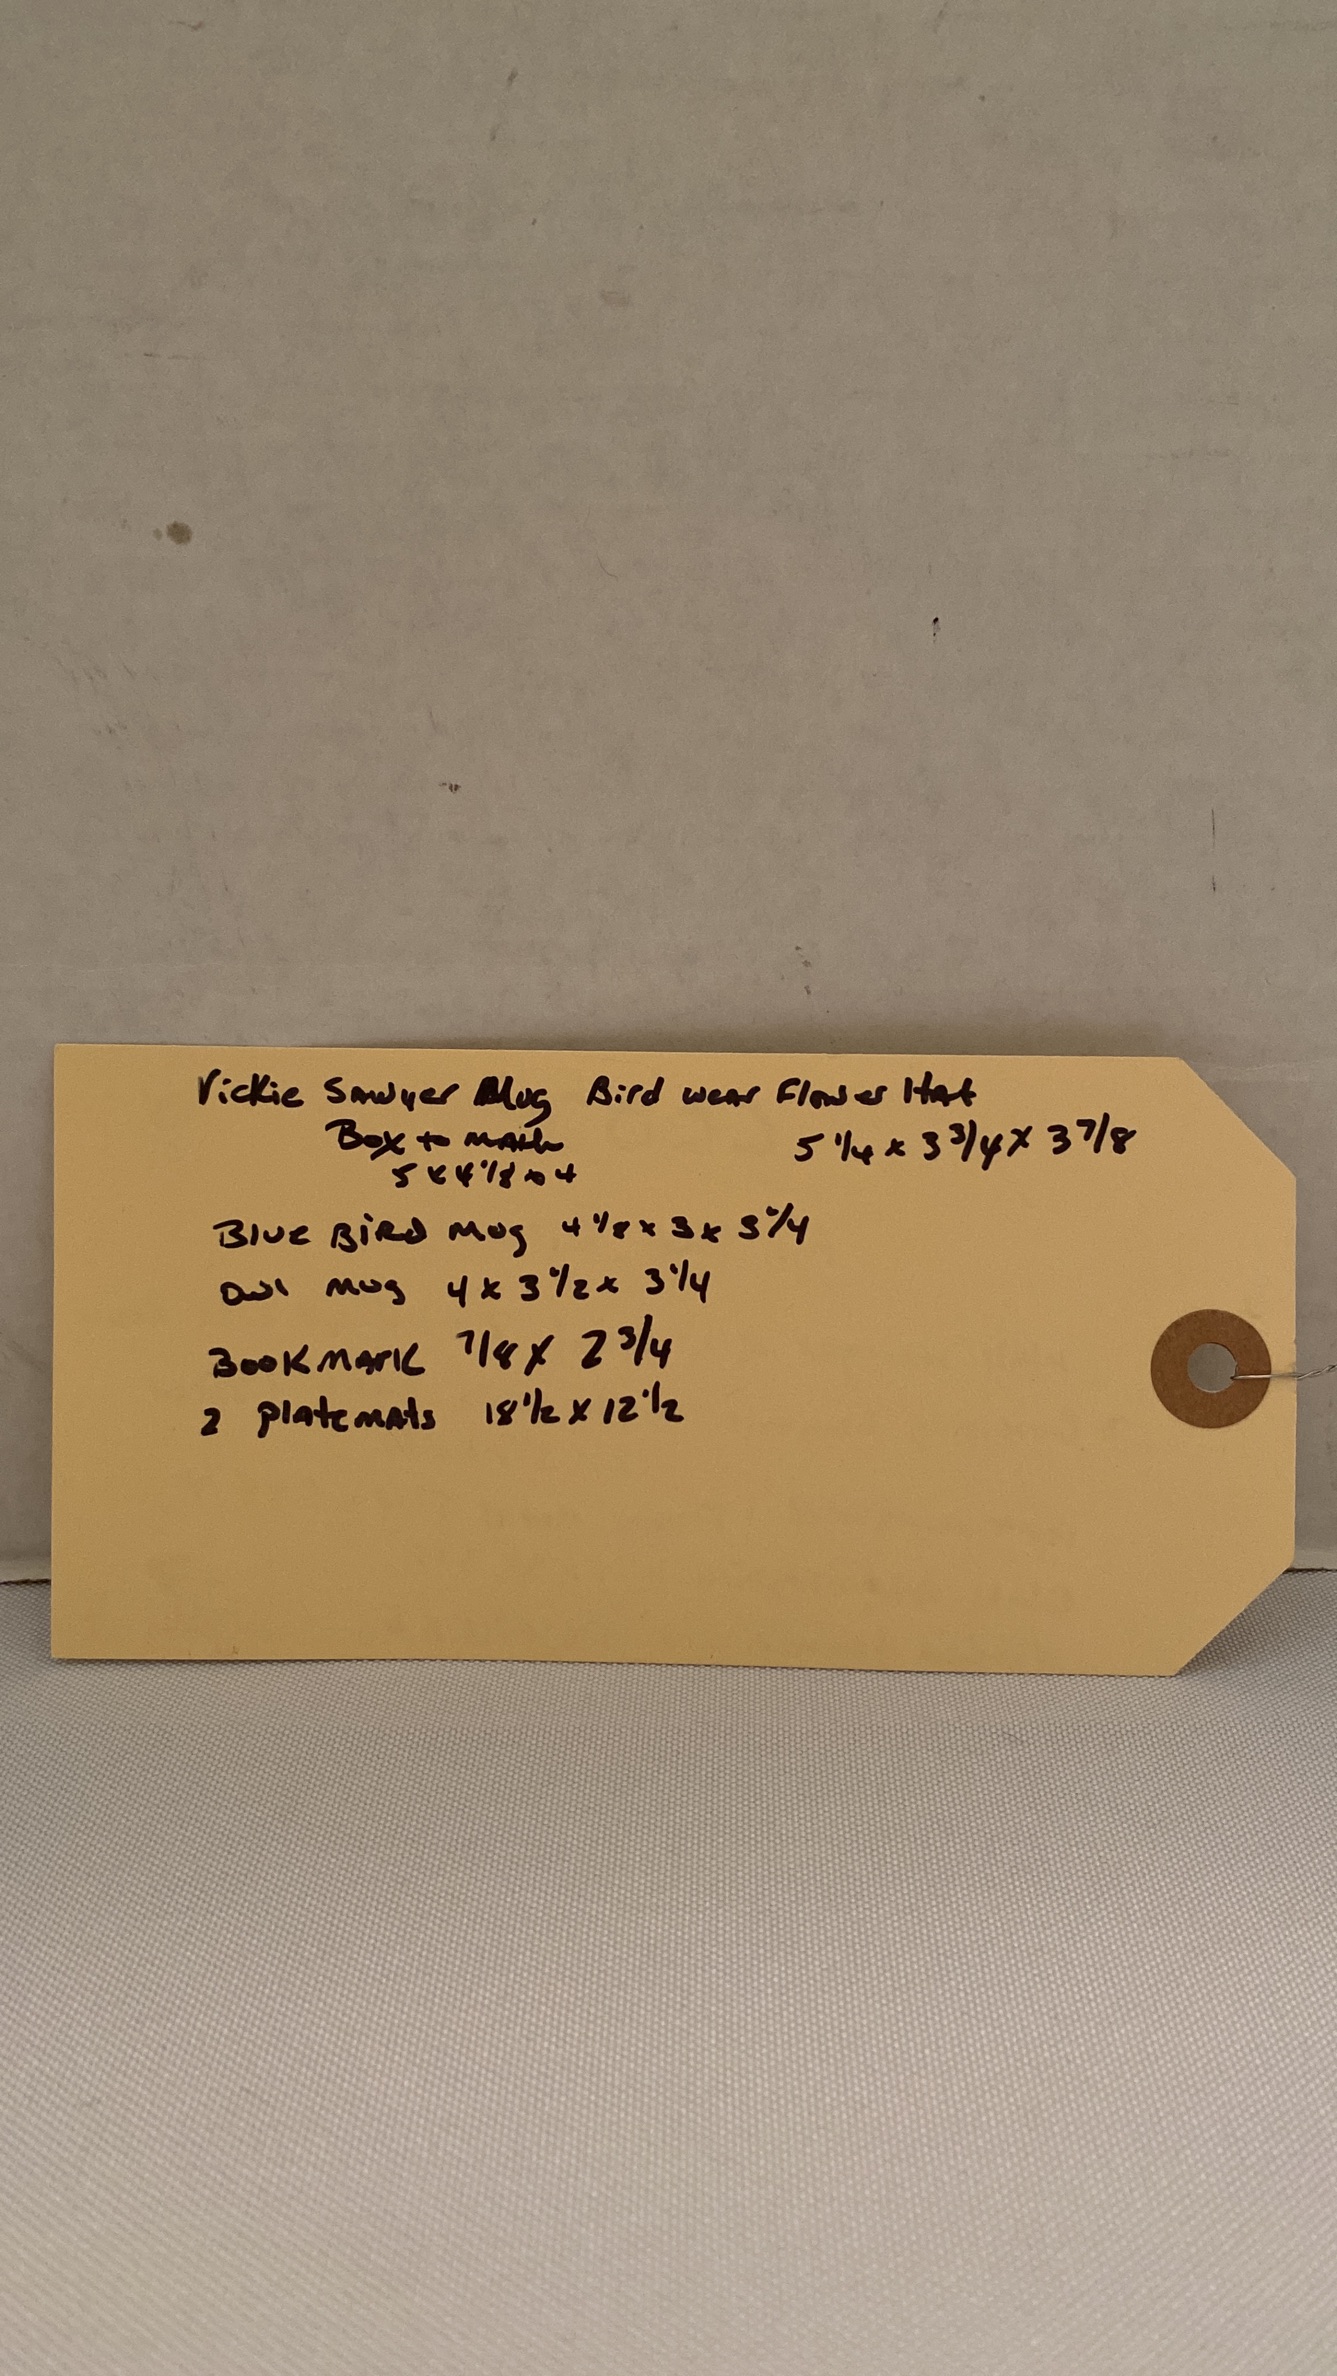 Vickie Sawyer Mug Bird wear Flower Hat
Box to match 5 1/4 x 3 3/4 x 3 7/8
5 x 4 1/8 x 4
Blue BiRD Mug 4 1/8 x 3 x 3 1/4
Owl mug 4 x 3 1/2 x 3 1/4
BOOKMARK 7/8 X 2 3/4
2 platemats 18 1/2 x 12 1/2